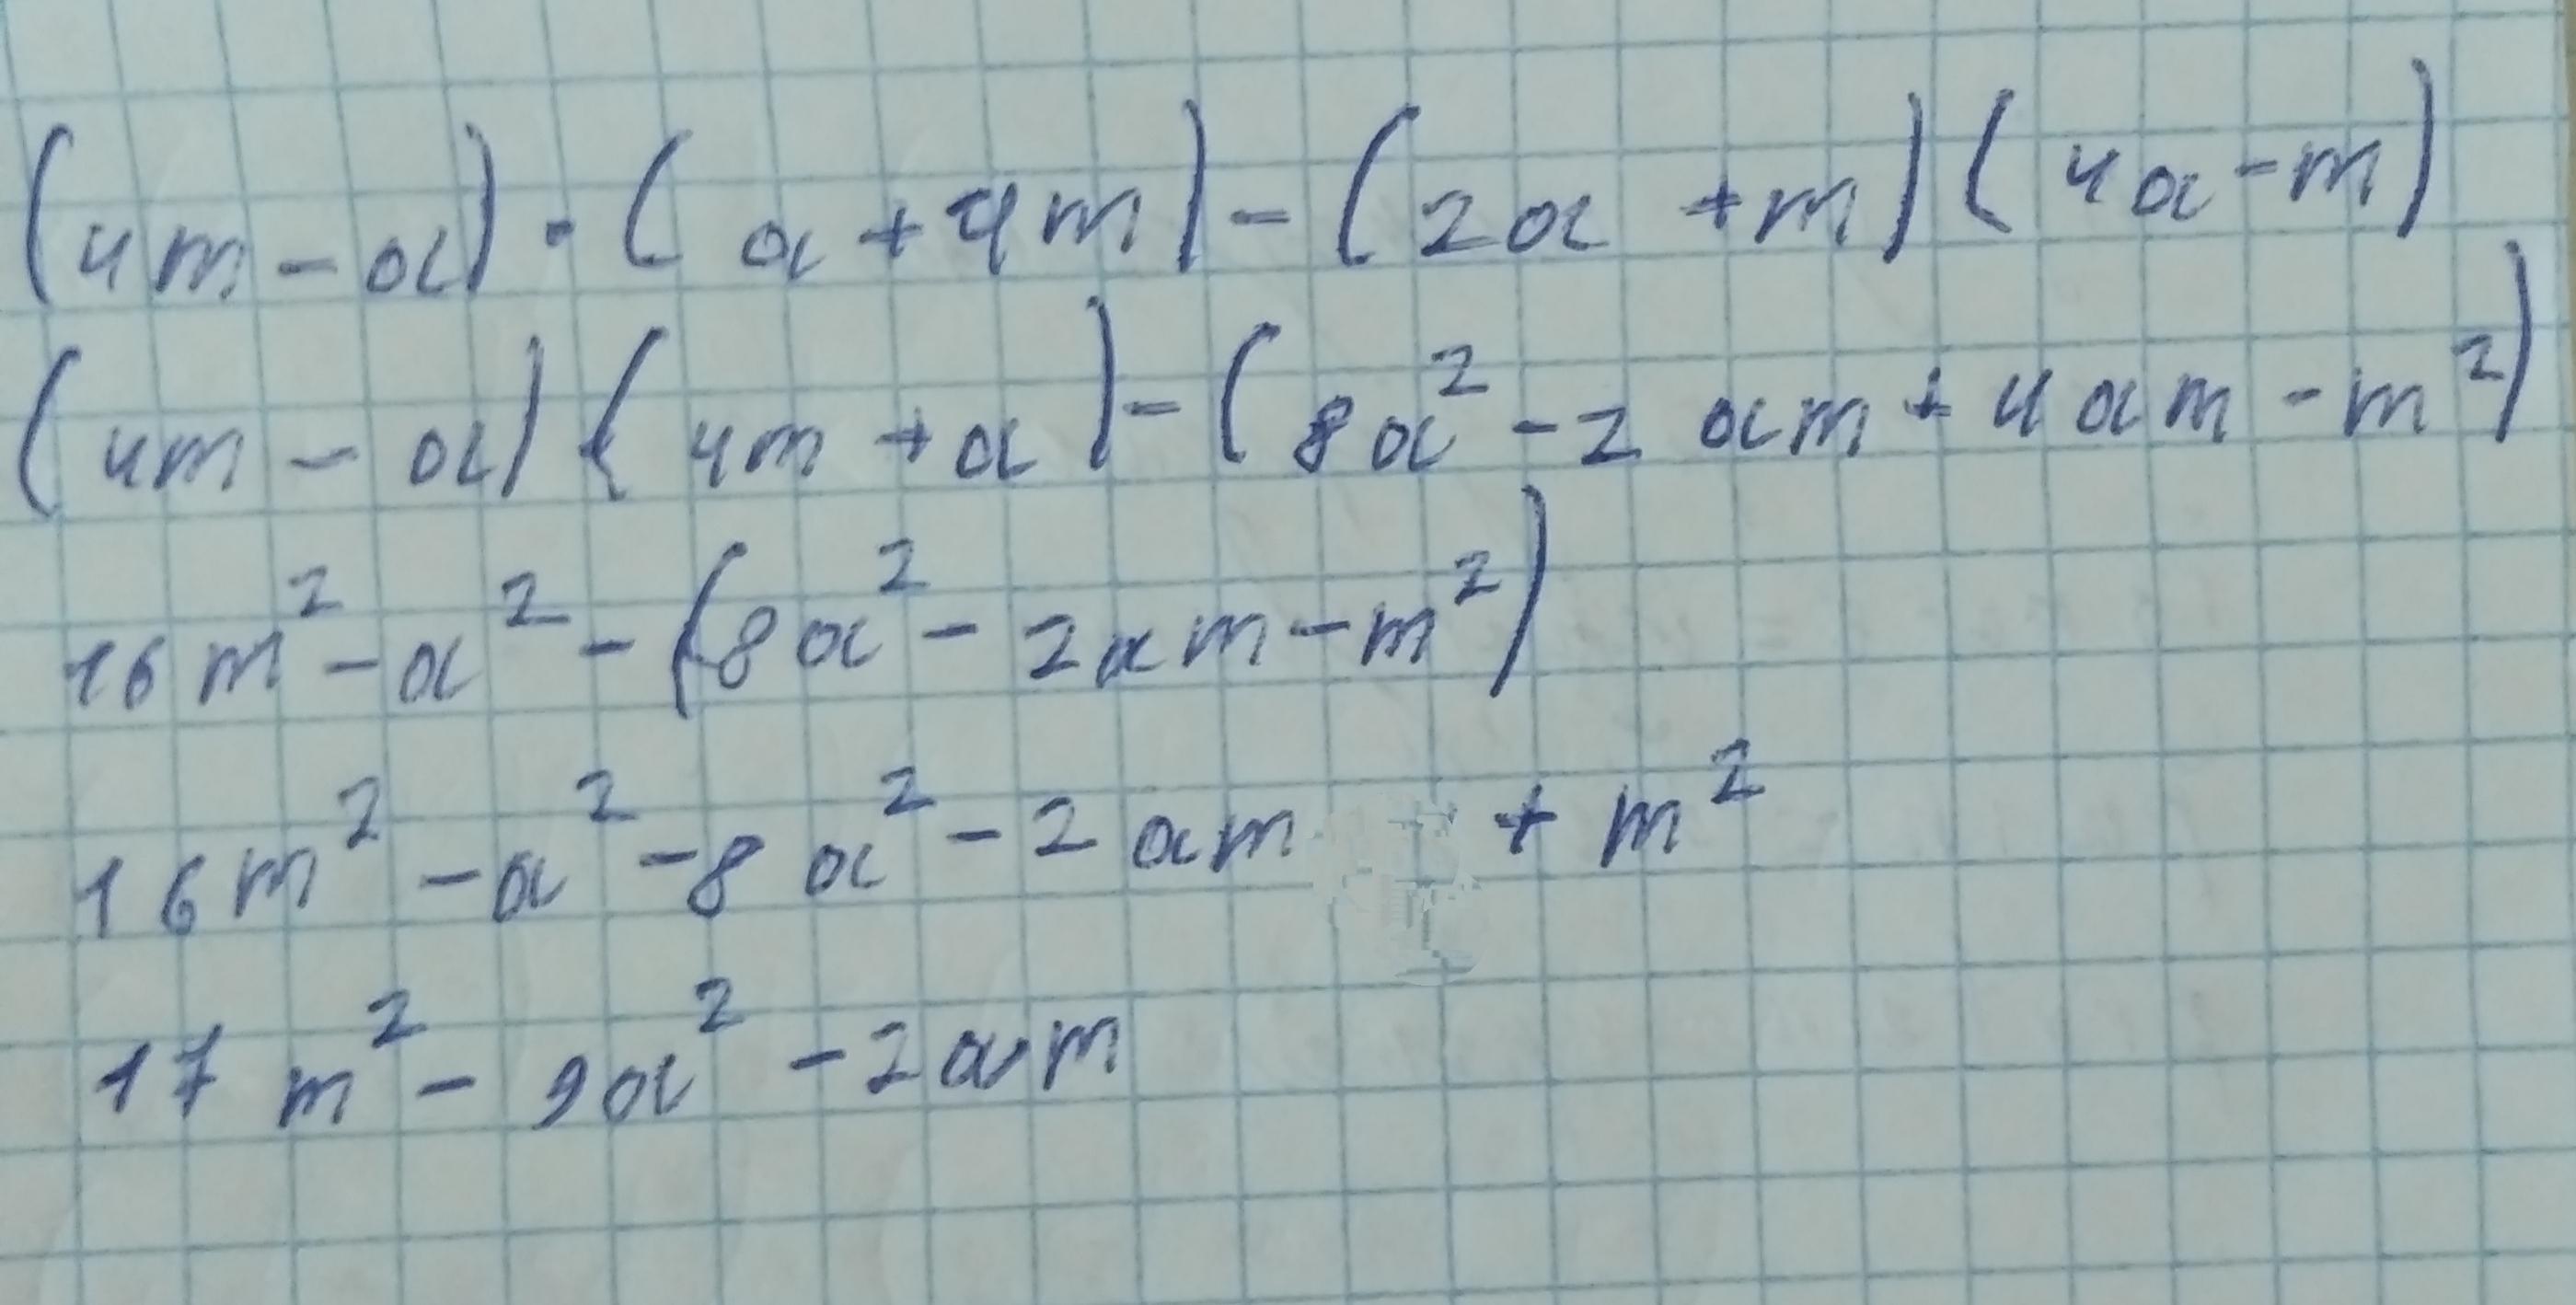 (4m-a)·(a+4m)-(2a+m)(4a-m)
(4m-a)(4m+a)-(8a²-2am+4am-m²)
16m²-a²-(8a²-2am-m²)
16m²-a²-8a²-2am+m²
17m²-9a²-2am